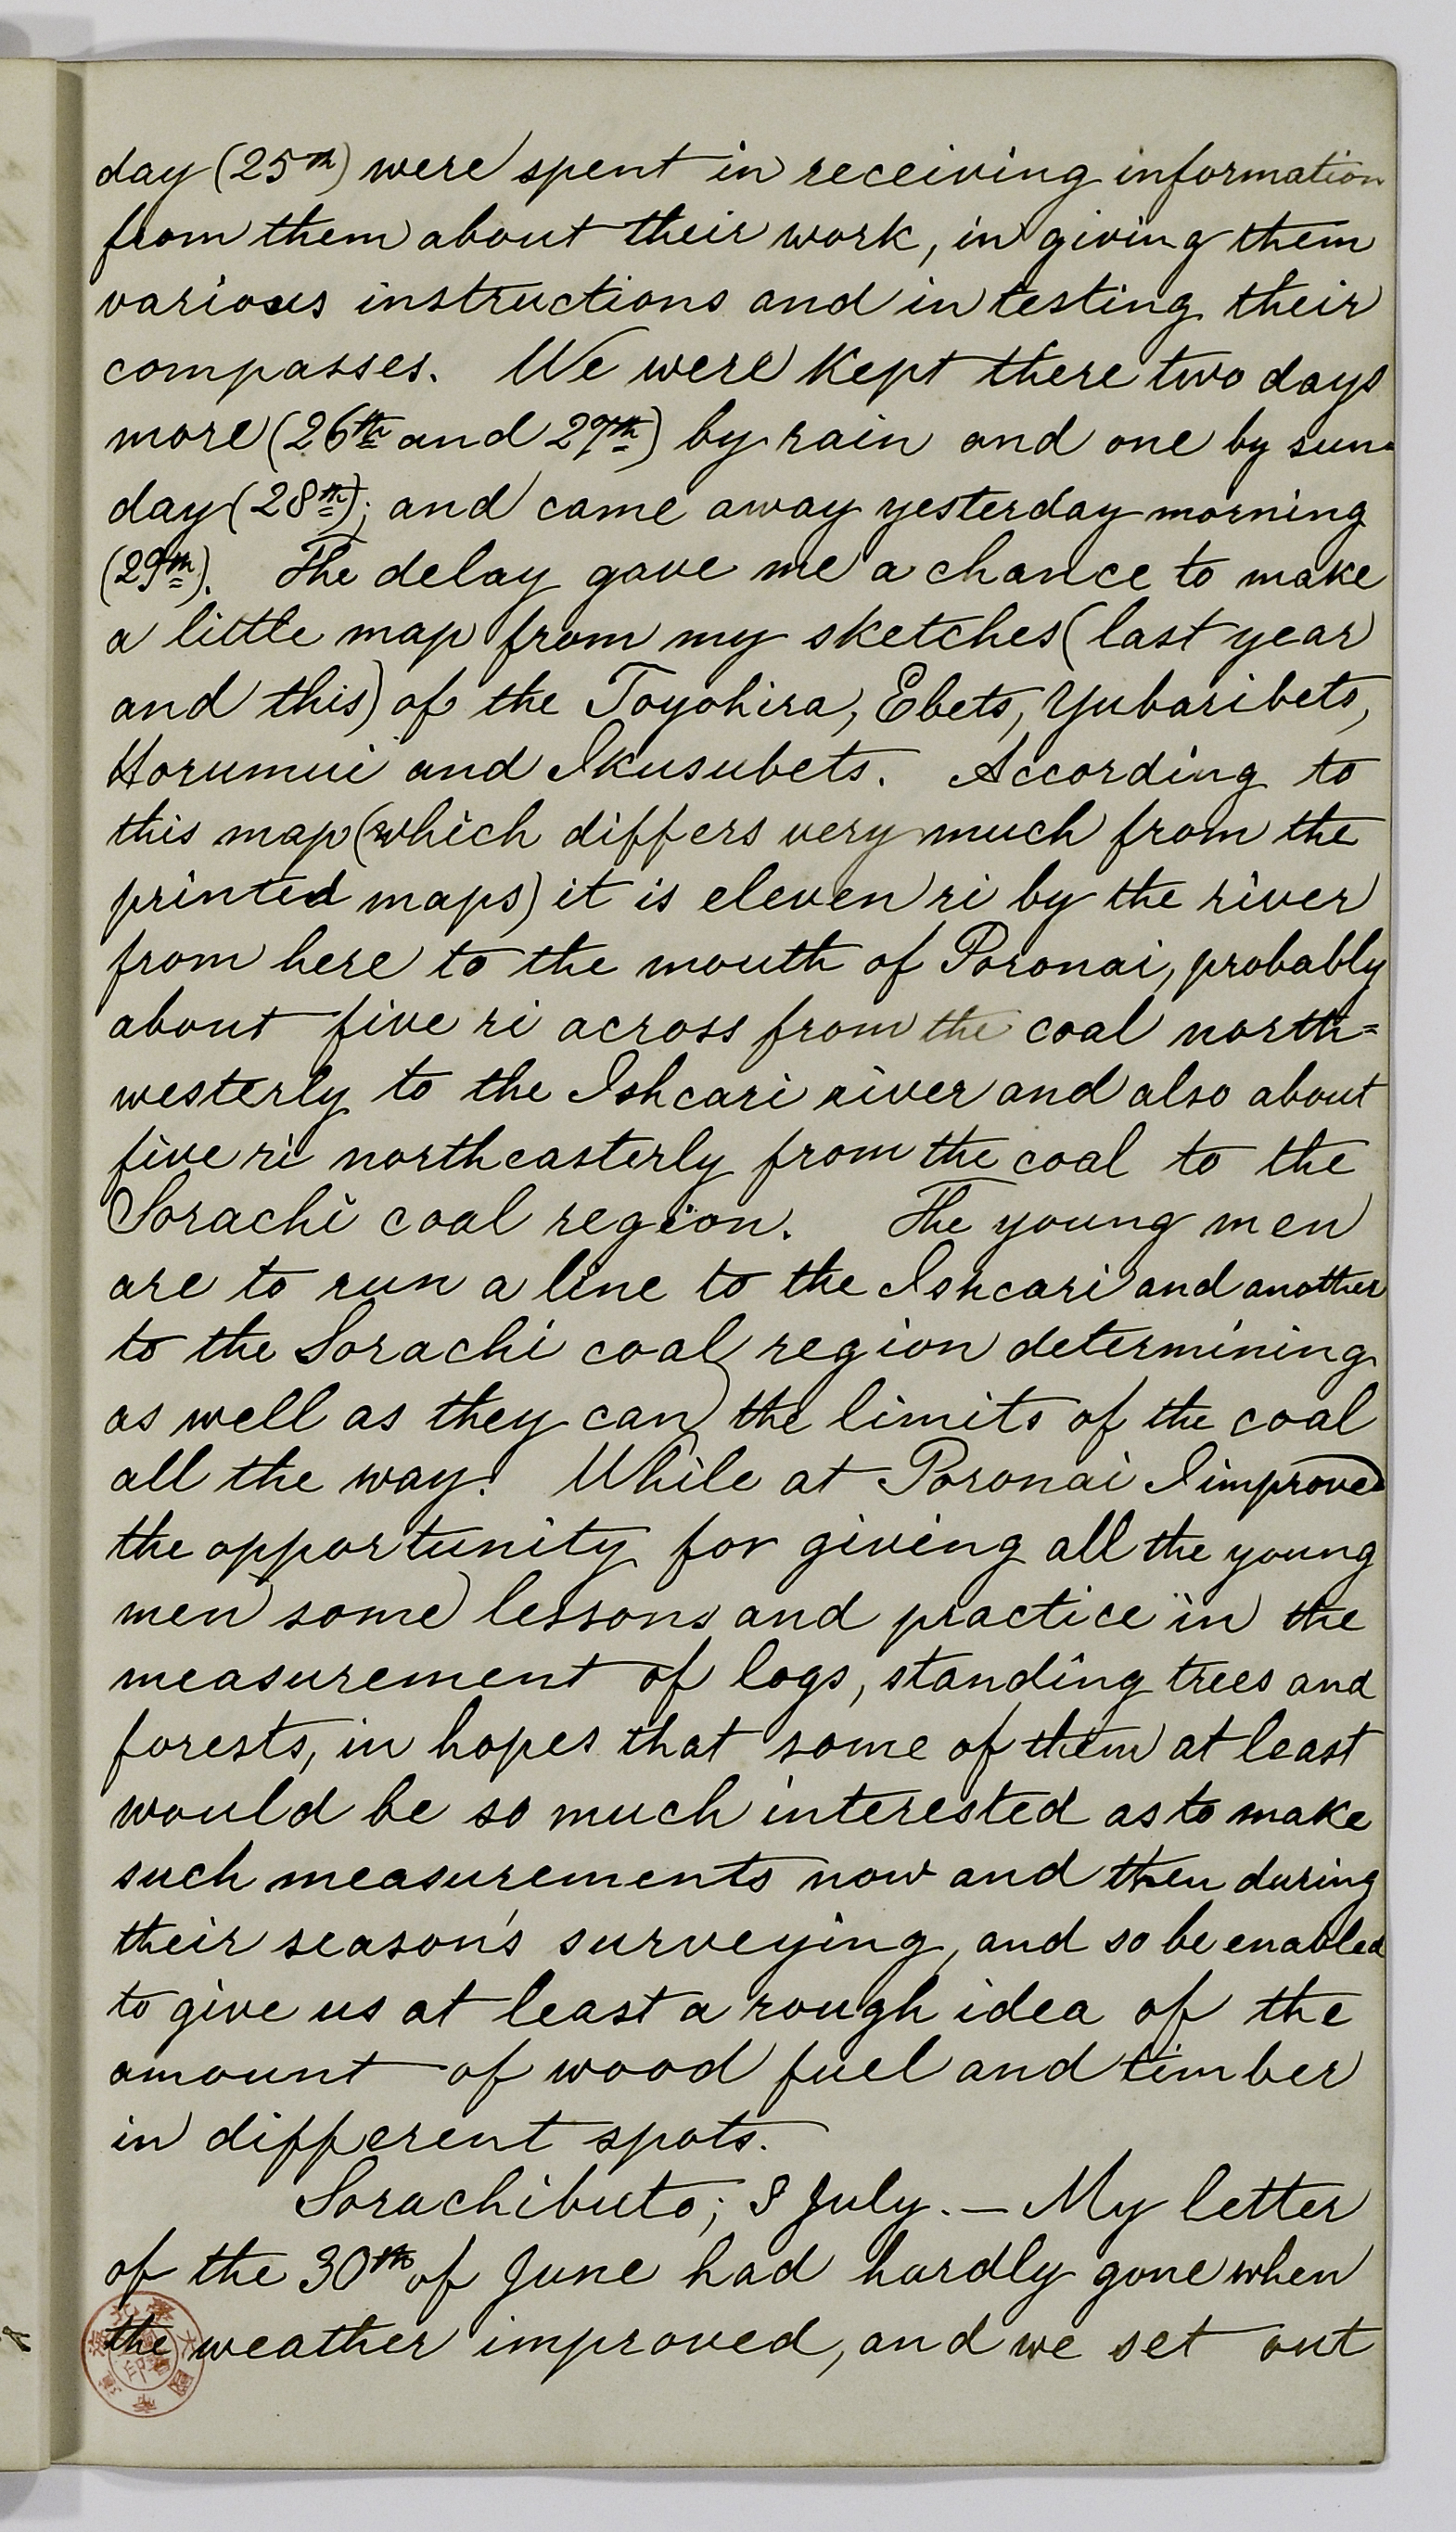 day (25th) were spent in receiving information
from them about their work, in giving them
various instructions and in testing their
compasses. We were kept there two days
more (26th and 27th) by rain and one by sun-
day (28th); and came away yesterday morning
(29th). The delay gave me a chance to make
a little map from my sketches (last year
and this) of the Toyohira, Ebets, Yubaribets,
Horumui and Ikusubets. According to
this map (which differs very much from the
printed maps) it is eleven ri by the river
from here to the mouth of Poronai, probably
about five ri across from the coal north=
westerly to the Ishcari river and also about
five ri northeasterly from the coal to the
Sorachi coal region. The young men
are to run a line to the Ishcari and another
to the Sorachi coal region determining
as well as they can the limits of the coal
all the way. While at Poronai I improved
the opportunity for giving all the young
men some lessons and practice in the
measurement of logs, standing trees and
forests, in hopes that some of them at least
would be so much interested as to make
such measurements now and then during
their season's surveying, and so be enabled
to give us at least a rough idea of the
amount of wood fuel and timber
in different spots.
Sorachibuto; 8 July. — My letter
of the 30th of June had hardly gone when
the weather improved, and we set out